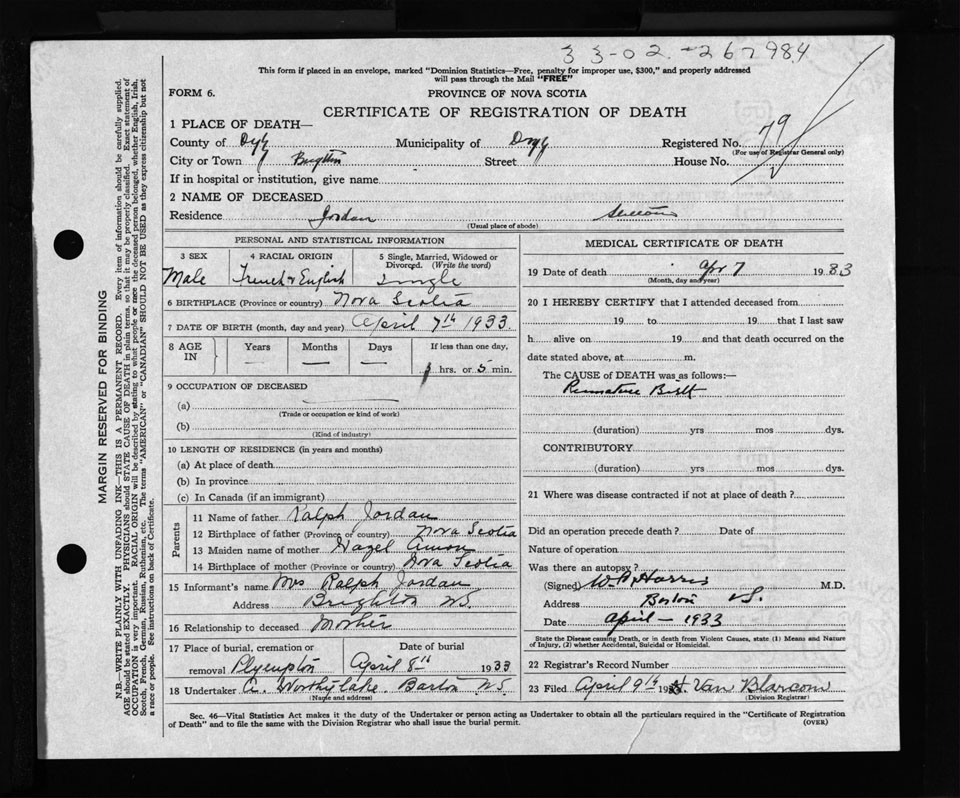 33-02-267984
This form if placed in an envelope, marked "Dominion Statistics—Free, penalty for improper use, $300," and properly addressed
will pass through the Mail "FREE"
FORM 6.
PROVINCE OF NOVA SCOTIA
CERTIFICATE OF REGISTRATION OF DEATH
1 PLACE OF DEATH—
County of Municipality of Registered No. 79
(For use of Registrar General only)
City or Town Street House No.
If in hospital or institution, give name
2 NAME OF DECEASED
Residence Jordan
(Usual place of abode)
PERSONAL AND STATISTICAL INFORMATION
3 SEX 4 RACIAL ORIGIN 5 Single, Married, Widowed or Divorced. (Write the word)
Male French & English Single
6 BIRTHPLACE (Province or country) Nova Scotia
7 DATE OF BIRTH (month, day and year) April 7th 1933.
8 AGE IN Years Months Days If less than one day,
hrs. or 5 min.
9 OCCUPATION OF DECEASED
(a)
(Trade or occupation or kind of work)
(b)
(Kind of industry)
10 LENGTH OF RESIDENCE (in years and months)
(a) At place of death
(b) In province
(c) In Canada (if an immigrant)
Parents
11 Name of father Ralph Jordan
12 Birthplace of father (Province or country) Nova Scotia
13 Maiden name of mother Hazel
14 Birthplace of mother (Province or country) Nova Scotia
15 Informant's name Mrs Ralph Jordan
Address Brighton N.S.
16 Relationship to deceased Mother
17 Place of burial, cremation or removal Plympton Date of burial April 8th 1933
18 Undertaker A. Worthylake. Barton N.S.
(Name and address)
MEDICAL CERTIFICATE OF DEATH
19 Date of death Apr 7 1933
(Month, day and year)
20 I HEREBY CERTIFY that I attended deceased from
19 to 19 that I last saw
h alive on 19 and that death occurred on the
date stated above, at m.
The CAUSE of DEATH was as follows:—
Premature Birth
(duration) yrs mos dys.
CONTRIBUTORY
(duration) yrs mos dys.
21 Where was disease contracted if not at place of death?
Did an operation precede death? Date of
Nature of operation
Was there an autopsy?
(Signed) Harris M.D.
Address Barton N.S.
Date April — 1933
State the Disease causing Death, or in death from Violent Causes, state (1) Means and Nature
of Injury, (2) whether Accidental, Suicidal or Homicidal.
22 Registrar's Record Number
23 Filed April 9th 19 Van Blarcom
(Division Registrar)
Sec. 46—Vital Statistics Act makes it the duty of the Undertaker or person acting as Undertaker to obtain all the particulars required in the "Certificate of Registration
of Death" and to file the same with the Division Registrar who shall issue the burial permit.
(OVER)
MARGIN RESERVED FOR BINDING
N.B.—WRITE PLAINLY WITH UNFADING INK—THIS IS A PERMANENT RECORD. Every item of information should be carefully supplied.
AGE should be stated EXACTLY. PHYSICIANS should STATE CAUSE OF DEATH in plain terms, so that it may be properly classified. Exact statement of
OCCUPATION is very important. RACIAL ORIGIN will be described by stating to what people or race the deceased person belonged, whether English, Irish,
Scotch, French, German, Russian, Ruthenian, etc. The terms "AMERICAN" or "CANADIAN" SHOULD NOT BE USED as they express citizenship but not
a race or people. See instructions on back of Certificate.